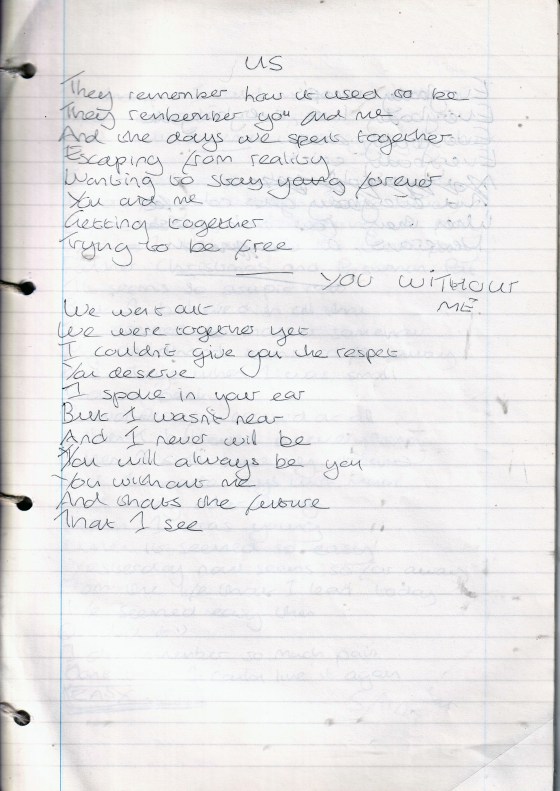 US
They remember how it used to be
They rembember you and me
And the days we spent together
Escaping from reality
Wanting to stay young forever
You and me
Getting together
Trying to be free
YOU WITHOUT
ME.
We went out
We were together yet
I couldn't give you the respet
You deserve
I spoke in your ear
But I wasn't near
And I never will be
You will always be you
You without me
And thats the future
That I see